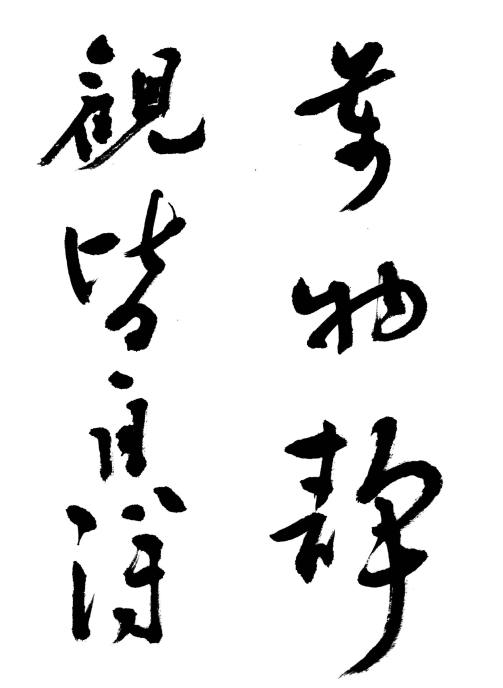 萬物静
觀皆自得